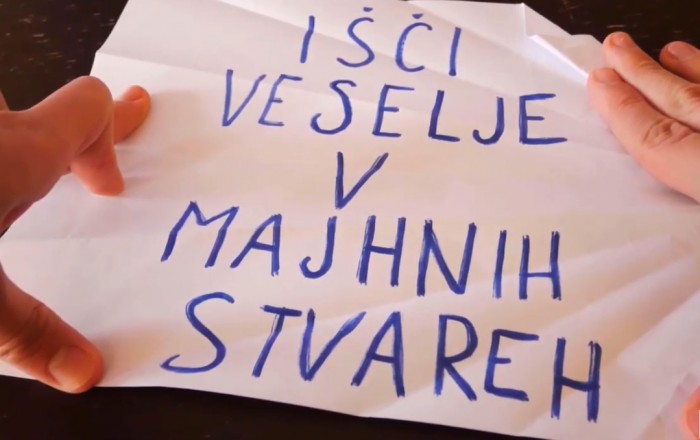 IŠČI
VESELJE
V
MAJHNIH
STVAREH